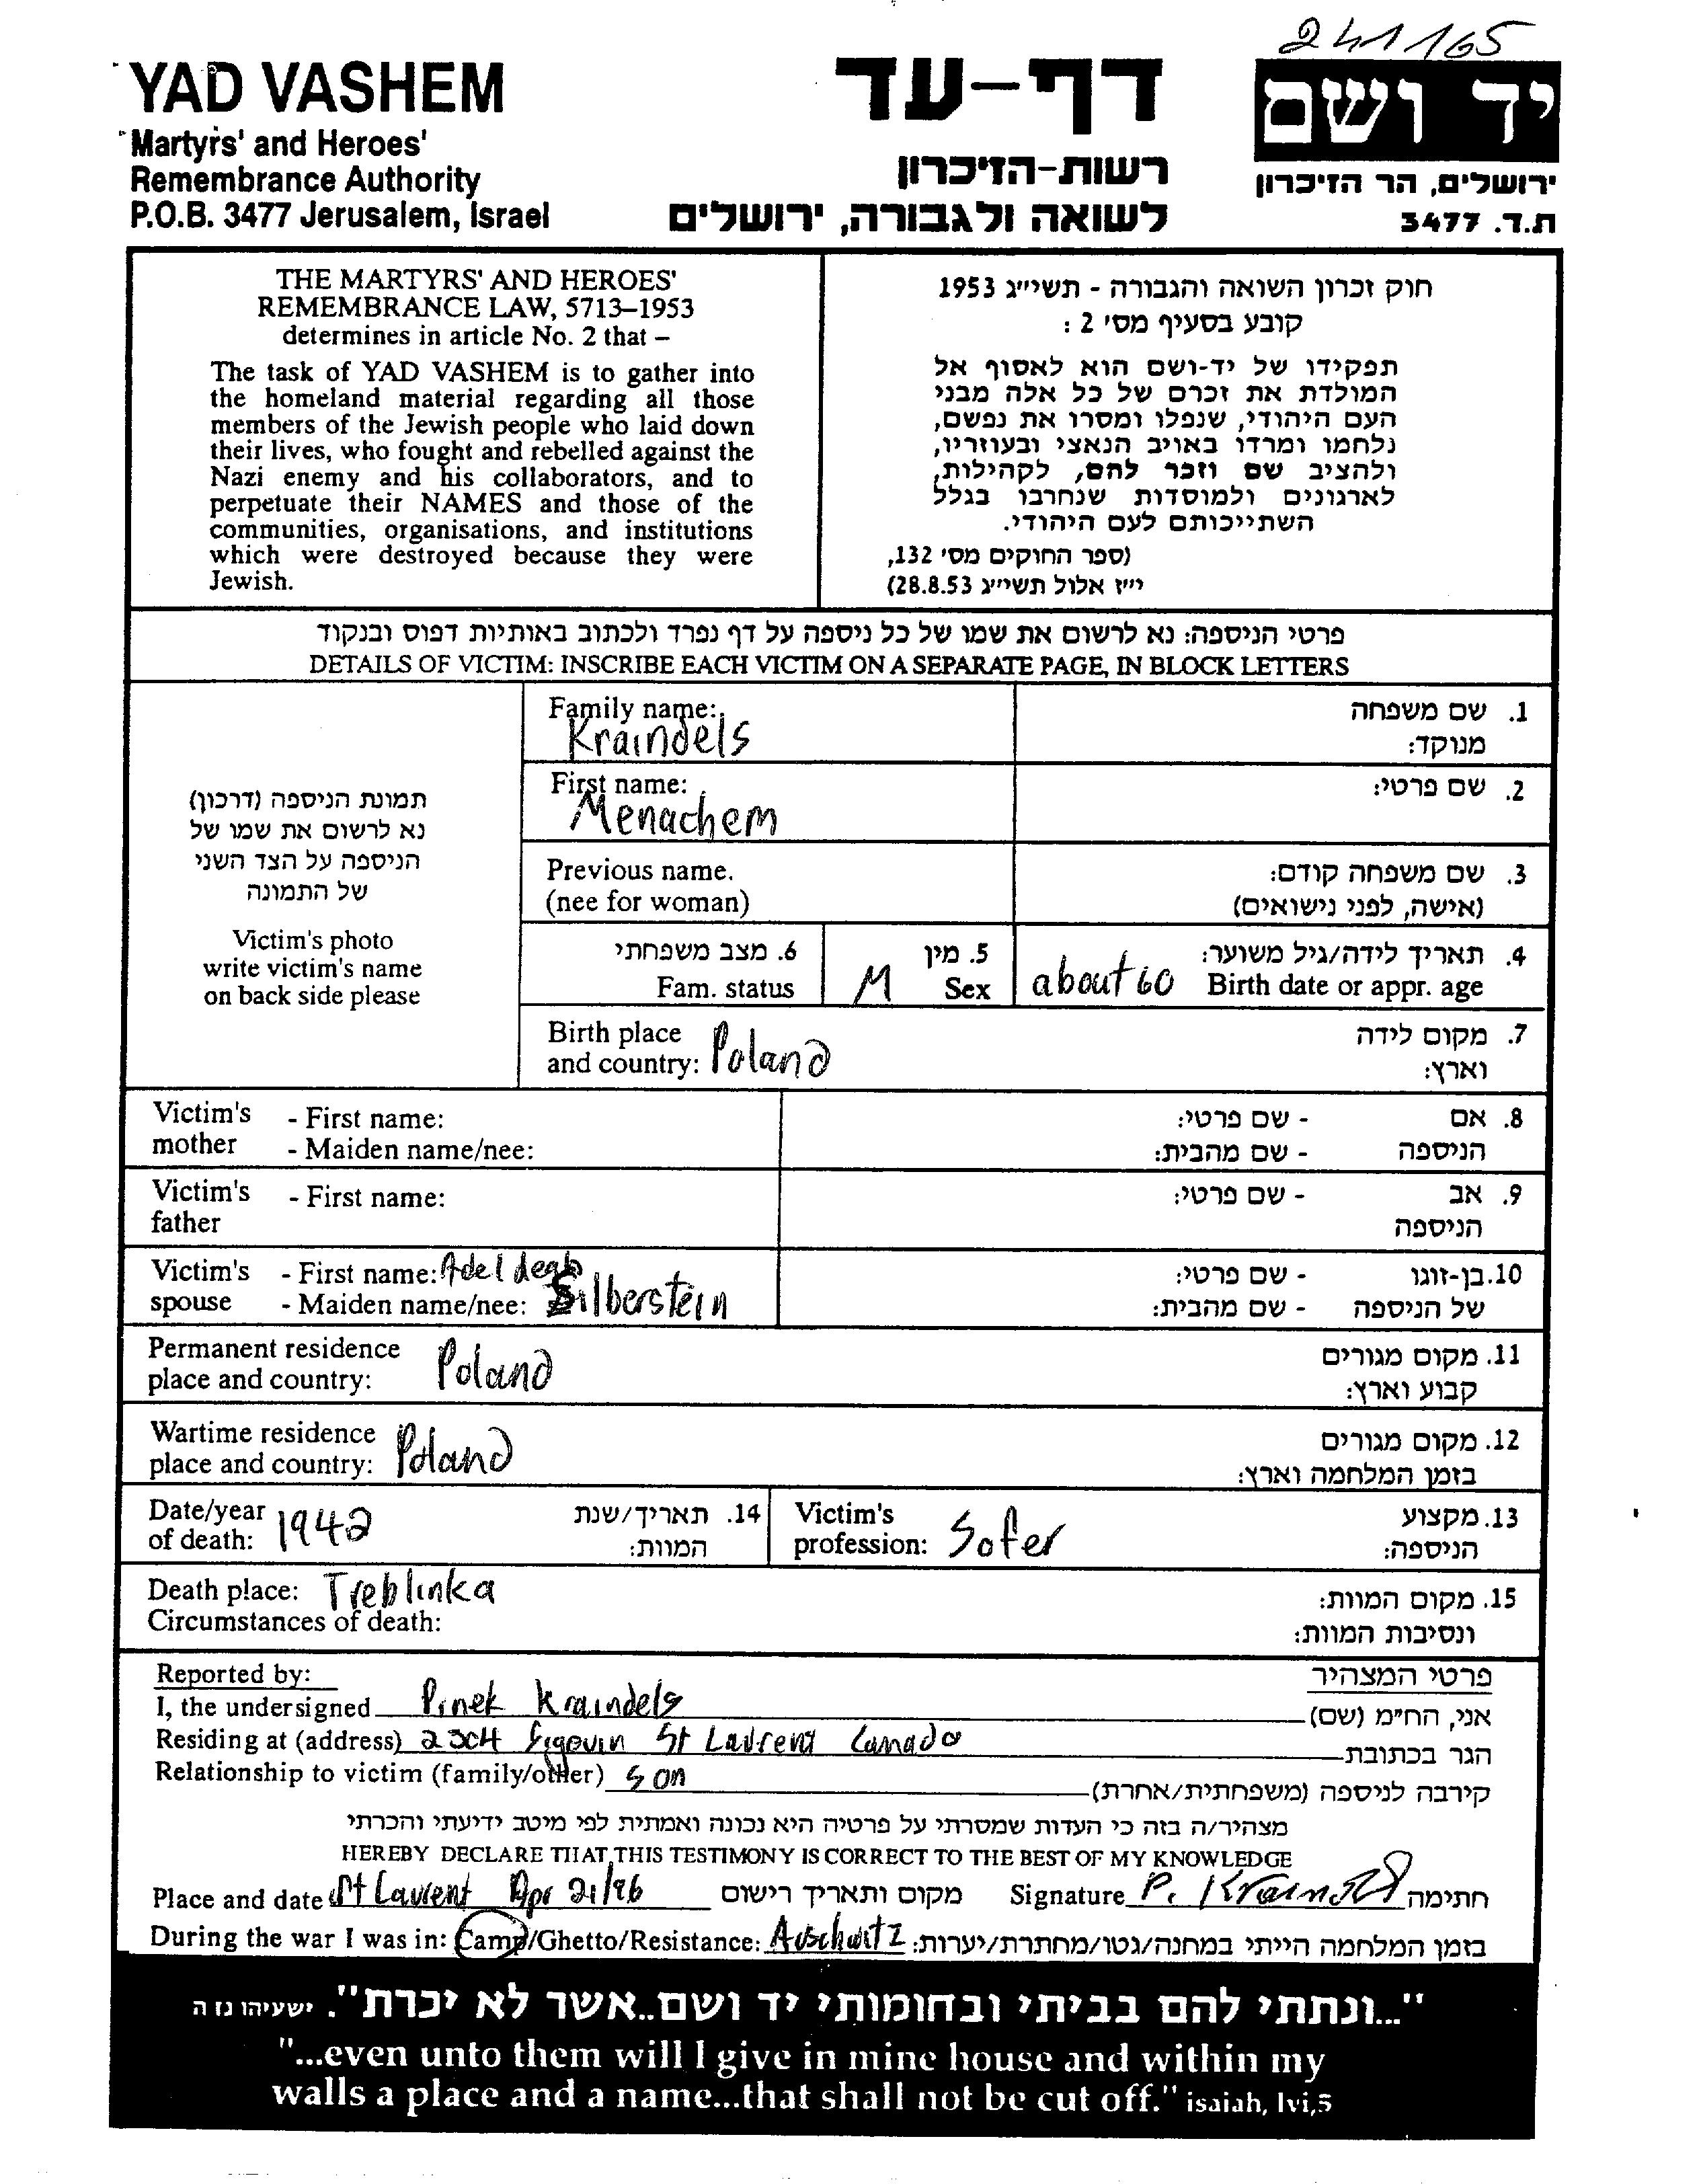 241165
YAD VASHEM
Martyrs' and Heroes'
Remembrance Authority
P.O.B. 3477 Jerusalem, Israel
דף-עד
רשות-הזיכרון
לשואה ולגבורה, ירושלים
יד ושם
ירושלים, הר הזיכרון
ת.ד. 3477
THE MARTYRS' AND HEROES'
REMEMBRANCE LAW, 5713–1953
determines in article No. 2 that –
The task of YAD VASHEM is to gather into
the homeland material regarding all those
members of the Jewish people who laid down
their lives, who fought and rebelled against the
Nazi enemy and his collaborators, and to
perpetuate their NAMES and those of the
communities, organisations, and institutions
which were destroyed because they were
Jewish.
חוק זכרון השואה והגבורה - תשי״ג 1953
קובע בסעיף מס׳ 2 :
תפקידו של יד-ושם הוא לאסוף אל
המולדת את זכרם של כל אלה מבני
העם היהודי, שנפלו ומסרו את נפשם,
נלחמו ומרדו באויב הנאצי ובעוזריו,
ולהציב שם וזכר להם, לקהילות,
לארגונים ולמוסדות שנחרבו בגלל
השתייכותם לעם היהודי.
(ספר החוקים מס׳ 132,
י״ז אלול תשי״ג 28.8.53)
פרטי הניספה: נא לרשום את שמו של כל ניספה על דף נפרד ולכתוב באותיות דפוס ובנקוד
DETAILS OF VICTIM: INSCRIBE EACH VICTIM ON A SEPARATE PAGE, IN BLOCK LETTERS
תמונת הניספה (דרכון)
נא לרשום את שמו של
הניספה על הצד השני
של התמונה
Victim's photo
write victim's name
on back side please
Family name: 1. שם משפחה
Kraindels מנוקד:
First name: 2. שם פרטי:
Menachem
Previous name. 3. שם משפחה קודם:
(nee for woman) (אישה, לפני נישואים)
6. מצב משפחתי 5. מין 4. תאריך לידה/גיל משוער:
Fam. status M Sex about 60 Birth date or appr. age
Birth place 7. מקום לידה
and country: Poland וארץ:
Victim's - First name: 8. אם - שם פרטי:
mother - Maiden name/nee: הניספה - שם מהבית:
Victim's - First name: 9. אב - שם פרטי:
father הניספה
Victim's - First name: Adel 10. בן-זוגו - שם פרטי:
spouse - Maiden name/nee: Silberstein של הניספה - שם מהבית:
Permanent residence 11. מקום מגורים
place and country: Poland קבוע וארץ:
Wartime residence 12. מקום מגורים
place and country: Poland בזמן המלחמה וארץ:
Date/year 14. תאריך/שנת Victim's 13. מקצוע
of death: 1942 המוות: profession: Sofer הניספה:
Death place: Treblinka 15. מקום המוות:
Circumstances of death: ונסיבות המוות:
Reported by: פרטי המצהיר
I, the undersigned Pinek Kraindels אני, הח״מ (שם)
Residing at (address) 2304 St Laurent Canada הגר בכתובת
Relationship to victim (family/other) son קירבה לניספה (משפחתית/אחרת)
מצהיר/ה בזה כי העדות שמסרתי על פרטיה היא נכונה ואמתית לפי מיטב ידיעתי והכרתי
HEREBY DECLARE THAT THIS TESTIMONY IS CORRECT TO THE BEST OF MY KNOWLEDGE
Place and date St Laurent Apr 21/96 מקום ותאריך רישום Signature P. Kraindels חתימה
During the war I was in: Camp/Ghetto/Resistance: Auschwitz בזמן המלחמה הייתי במחנה/גטו/מחתרת/יערות:
"...ונתתי להם בביתי ובחומותי יד ושם..אשר לא יכרת". ישעיהו נז ה
"...even unto them will I give in mine house and within my
walls a place and a name...that shall not be cut off." isaiah, lvi,5